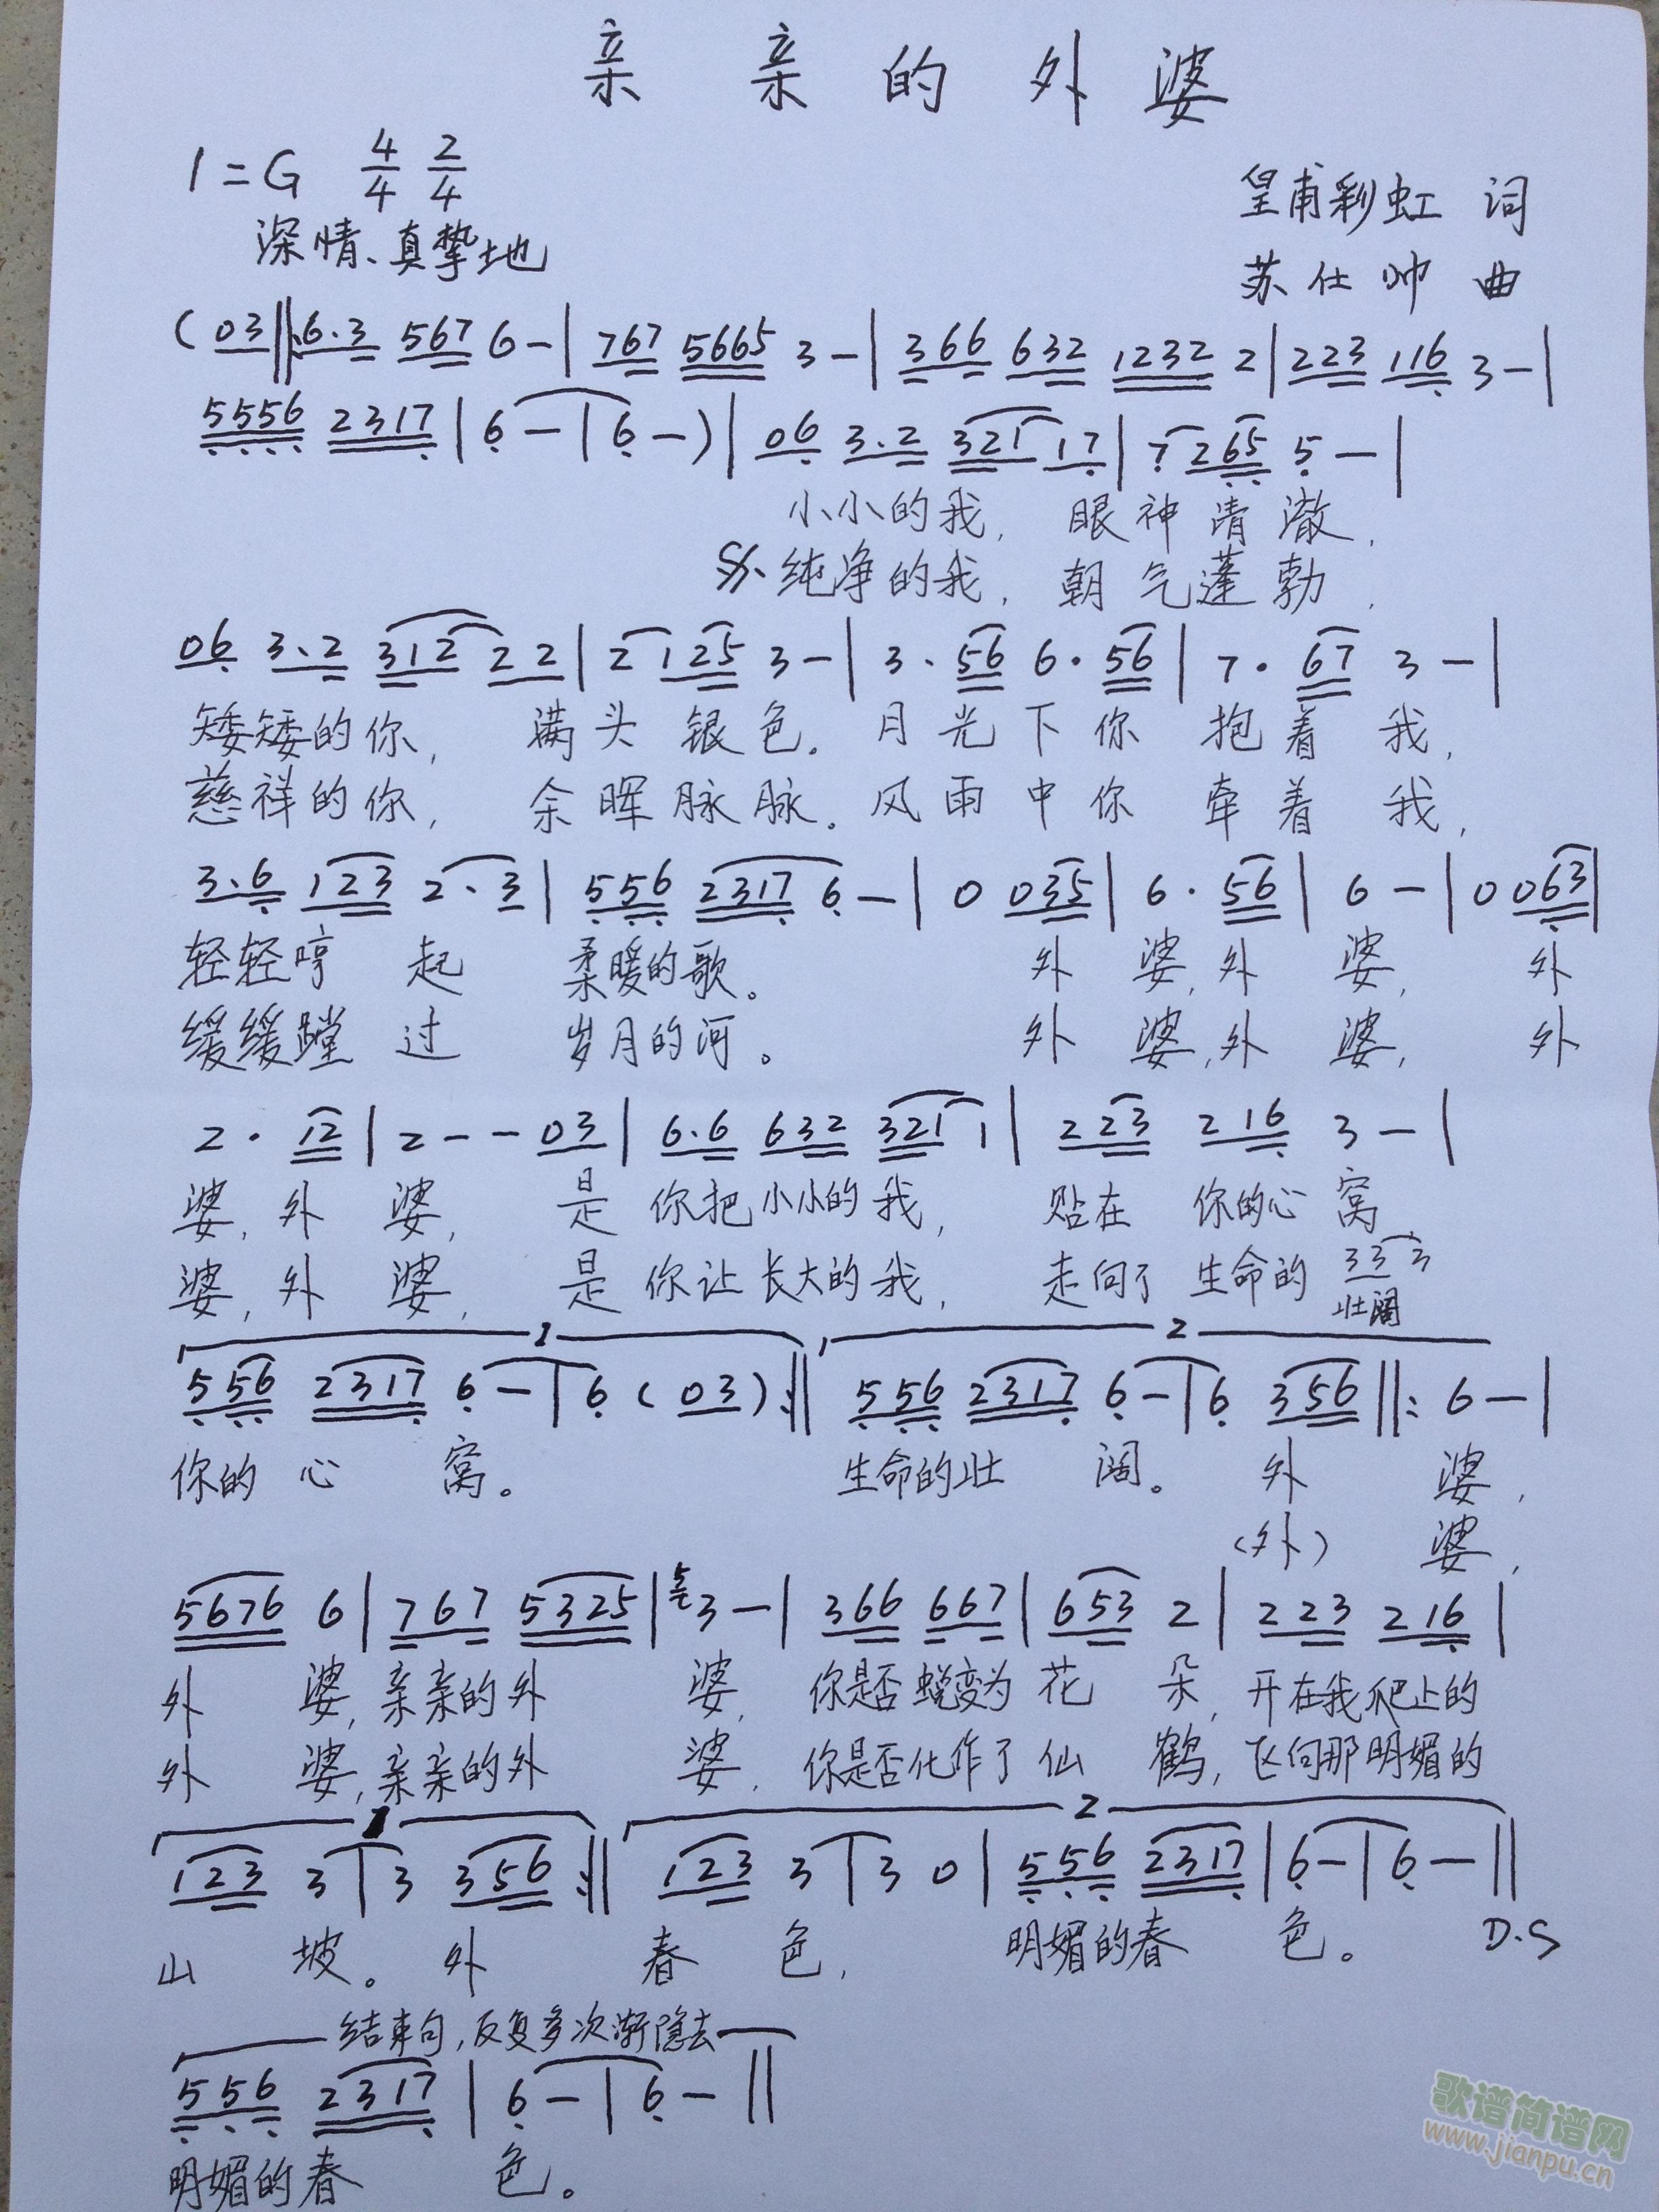 亲亲的外婆
1=G 4/4 2/4
皇甫彩虹 词
深情、真挚地
苏仕帅 曲
(03‖:6.3 567 6-|767 5665 3-|366 632 1232 2|223 116 3-|
5556 2317|6-|6-)|06 3.2 321 17|7265 5-|
小小的我, 眼神清澈,
纯净的我, 朝气蓬勃,
06 3.2 312 22|2125 3-|3.56 6.56|7.67 3-|
矮矮的你, 满头银色。月光下你抱着我,
慈祥的你, 余晖脉脉。风雨中你牵着我,
3.6 123 2.3|556 2317 6-|0 035|6.56|6-|0 063|
轻轻哼起 柔暖的歌。 外婆,外婆, 外
缓缓蹚过 岁月的河。 外婆,外婆, 外
2.12|2--03|6.6 632 321 1|223 216 3-|
婆,外婆, 是你把小小的我, 贴在你的心窝,
婆,外婆, 是你让长大的我, 走向了生命的 33 3
壮阔
1 2
556 2317 6-|6(03):‖556 2317 6-|6 356‖:6-|
你的心窝。 生命的壮阔。 外婆,
(外)婆,
5676 6|767 5325|5 3-|366 667|653 2|223 216|
外婆,亲亲的外婆, 你是否蜕变为花朵, 开在我爬上的
外婆,亲亲的外婆, 你是否化作了仙鹤, 飞向那明媚的
1 2
123 3|3 356:‖123 3|3 0|556 2317|6-|6-‖
山坡。外 春色, 明媚的春色。 D.S
结束句,反复多次渐隐去
556 2317|6-|6-‖
明媚的春色。
歌谱简谱网
www.jianpu.cn